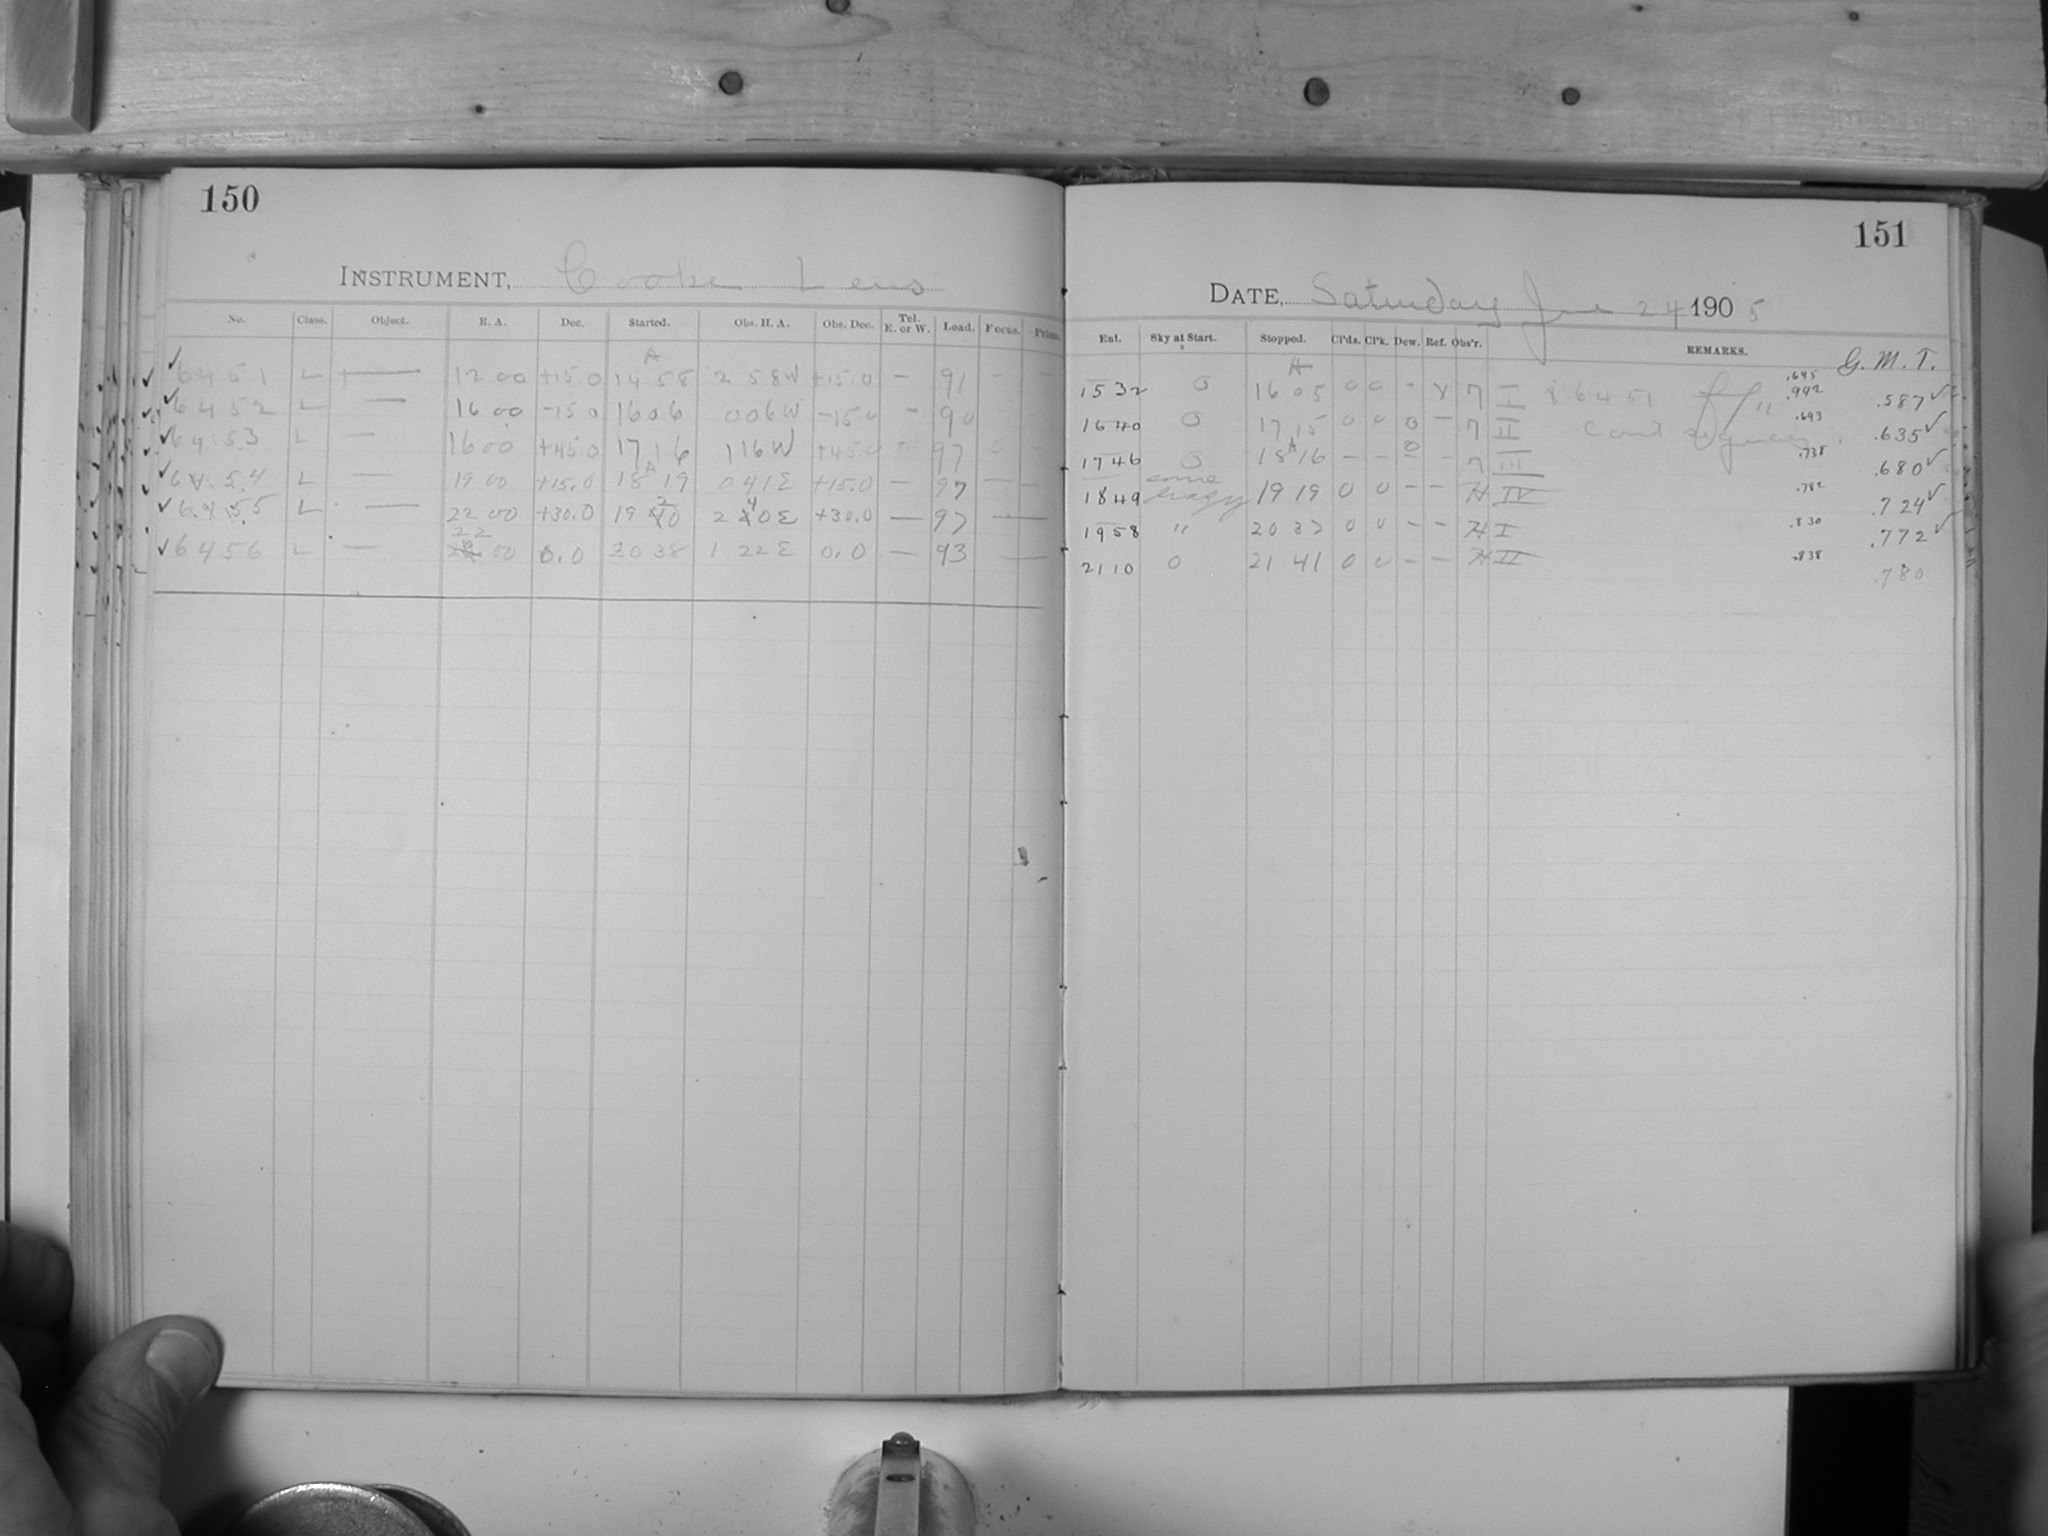 150
INSTRUMENT, Cooke Lens
No. Class. Object. R. A. Dec. Started. Obs. H. A. Obs. Dec. Tel. E. or W. Load. Focus. Prism.
✓6451 L — 12 00 +15.0 14 58 2 58W +15.0 — 91 — —
✓6452 L — 16 00 -15.0 16 06 0 06W -15.0 - 90
✓6453 L — 16 00 +45.0 17 16 1 16W +45.0 97
✓6454 L — 19 00 +15.0 18 19 0 41E +15.0 — 97 — —
✓6455 L — 22 00 +30.0 19 20 2 40E +30.0 — 97 — —
✓6456 L — 22 00 0.0 20 38 1 22E 0.0 — 93 — —
151
DATE, Saturday June 24 1905
Ent. Sky at Start. Stopped. Cl'ds. Cl'k. Dew. Ref. Obs'r. REMARKS. G. M. T.
1532 0 16 05 0 0 - I 6451 .587✓
1640 0 17 15 0 0 0 — II .693 .635✓
1746 0 18 16 — — — III .738 .680✓
1849 some hazy 19 19 0 0 — — H IV .782 .724✓
1958 " 20 37 0 0 — — H I .830 .772✓
2110 0 21 41 0 0 — — H II .838 .780